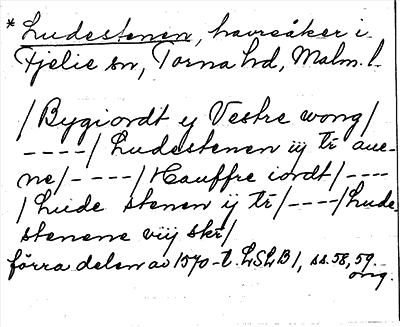 * Ludestenen, havreåker i
Fjelie sn, Torna hd, Malm. l.
/Bygiordt ij Vestre wong/
----/ Ludestenen iij tr aue-
ne/----/Hauffre iordt/----
/Lude stenen ij tr/----/Lude-
stenene viij skr/
förra delen av 1570-t. LSLB1, ss. 58, 59
orig.